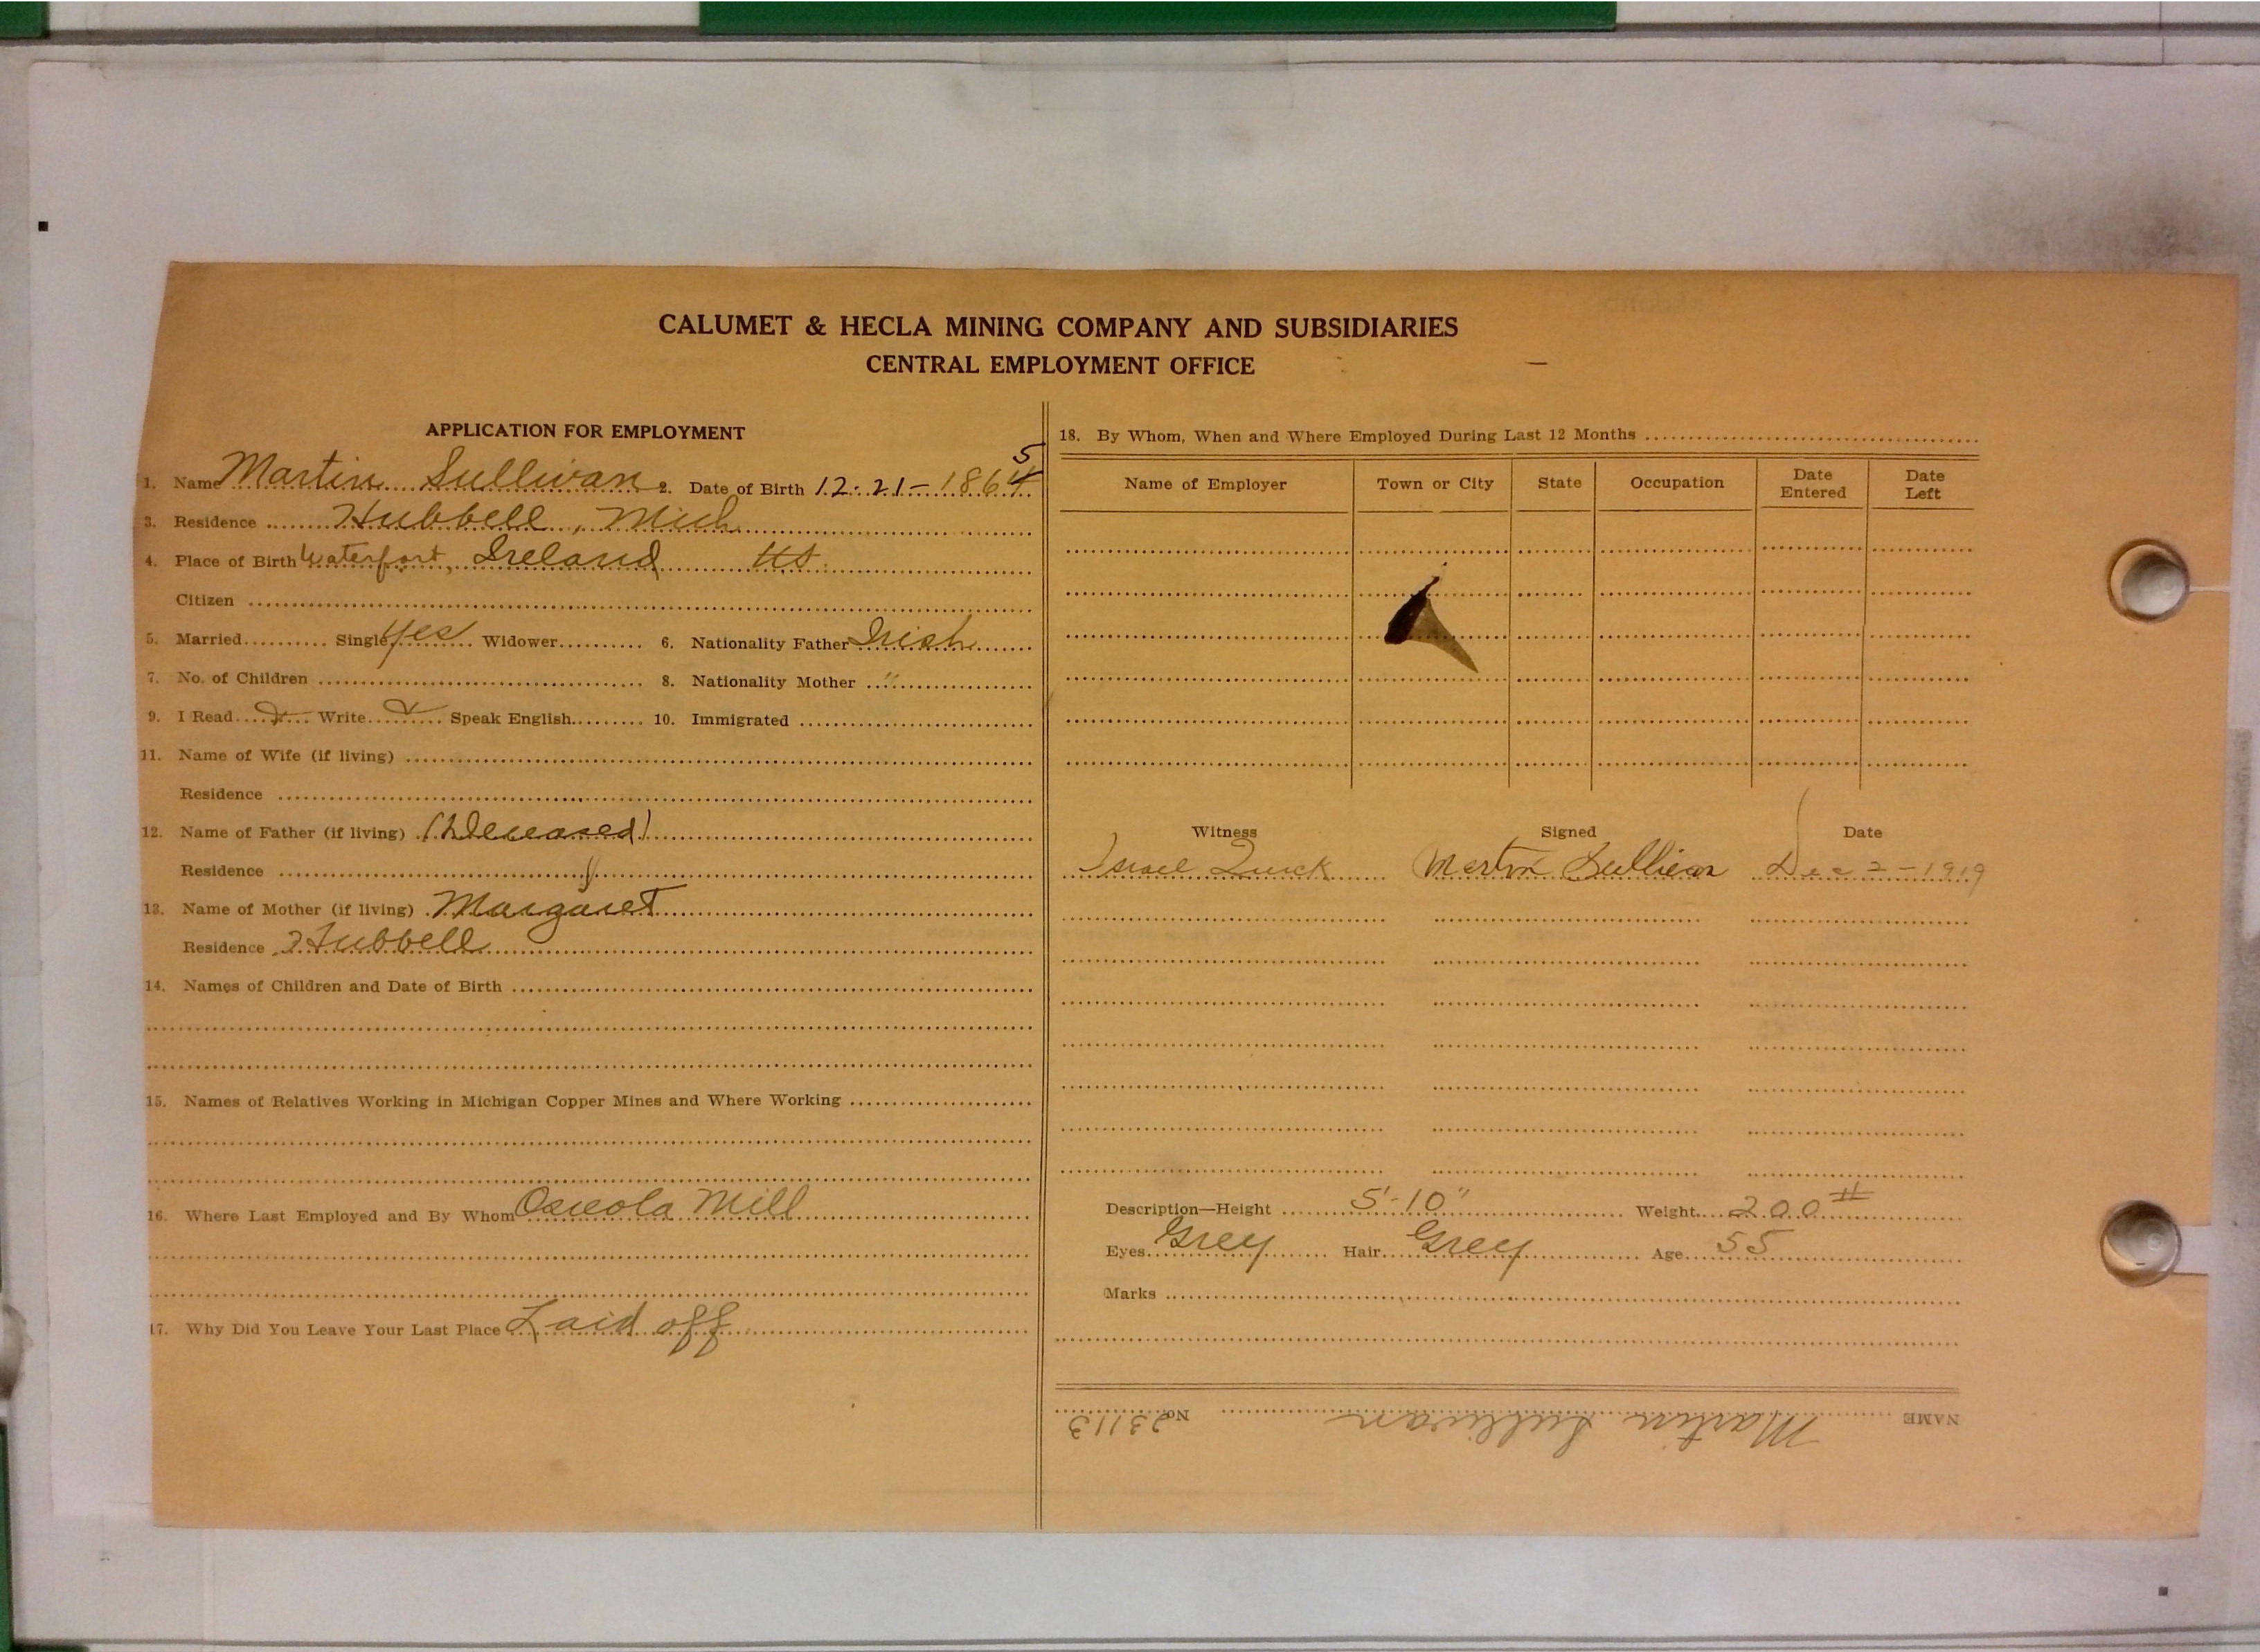 CALUMET & HECLA MINING COMPANY AND SUBSIDIARIES
CENTRAL EMPLOYMENT OFFICE
APPLICATION FOR EMPLOYMENT
1. Name Martin Sullivan 2. Date of Birth 12-21-1864 5
3. Residence Hubbell, Mich
4. Place of Birth Waterfort, Ireland US.
Citizen
5. Married Single yes Widower 6. Nationality Father Irish
7. No. of Children 8. Nationality Mother "
9. I Read Write Speak English 10. Immigrated
11. Name of Wife (if living)
Residence
12. Name of Father (if living) (Deceased)
Residence
13. Name of Mother (if living) Margaret
Residence Hubbell
14. Names of Children and Date of Birth
15. Names of Relatives Working in Michigan Copper Mines and Where Working
16. Where Last Employed and By Whom Osceola Mill
17. Why Did You Leave Your Last Place Laid off
18. By Whom, When and Where Employed During Last 12 Months
Name of Employer Town or City State Occupation Date Entered Date Left
Witness Signed Date
Israel Quick Martin Sullivan Dec 2-1919
Description—Height 5'-10" Weight 200#
Eyes Grey Hair Grey Age 55
Marks
NAME Martin Sullivan No. 23113